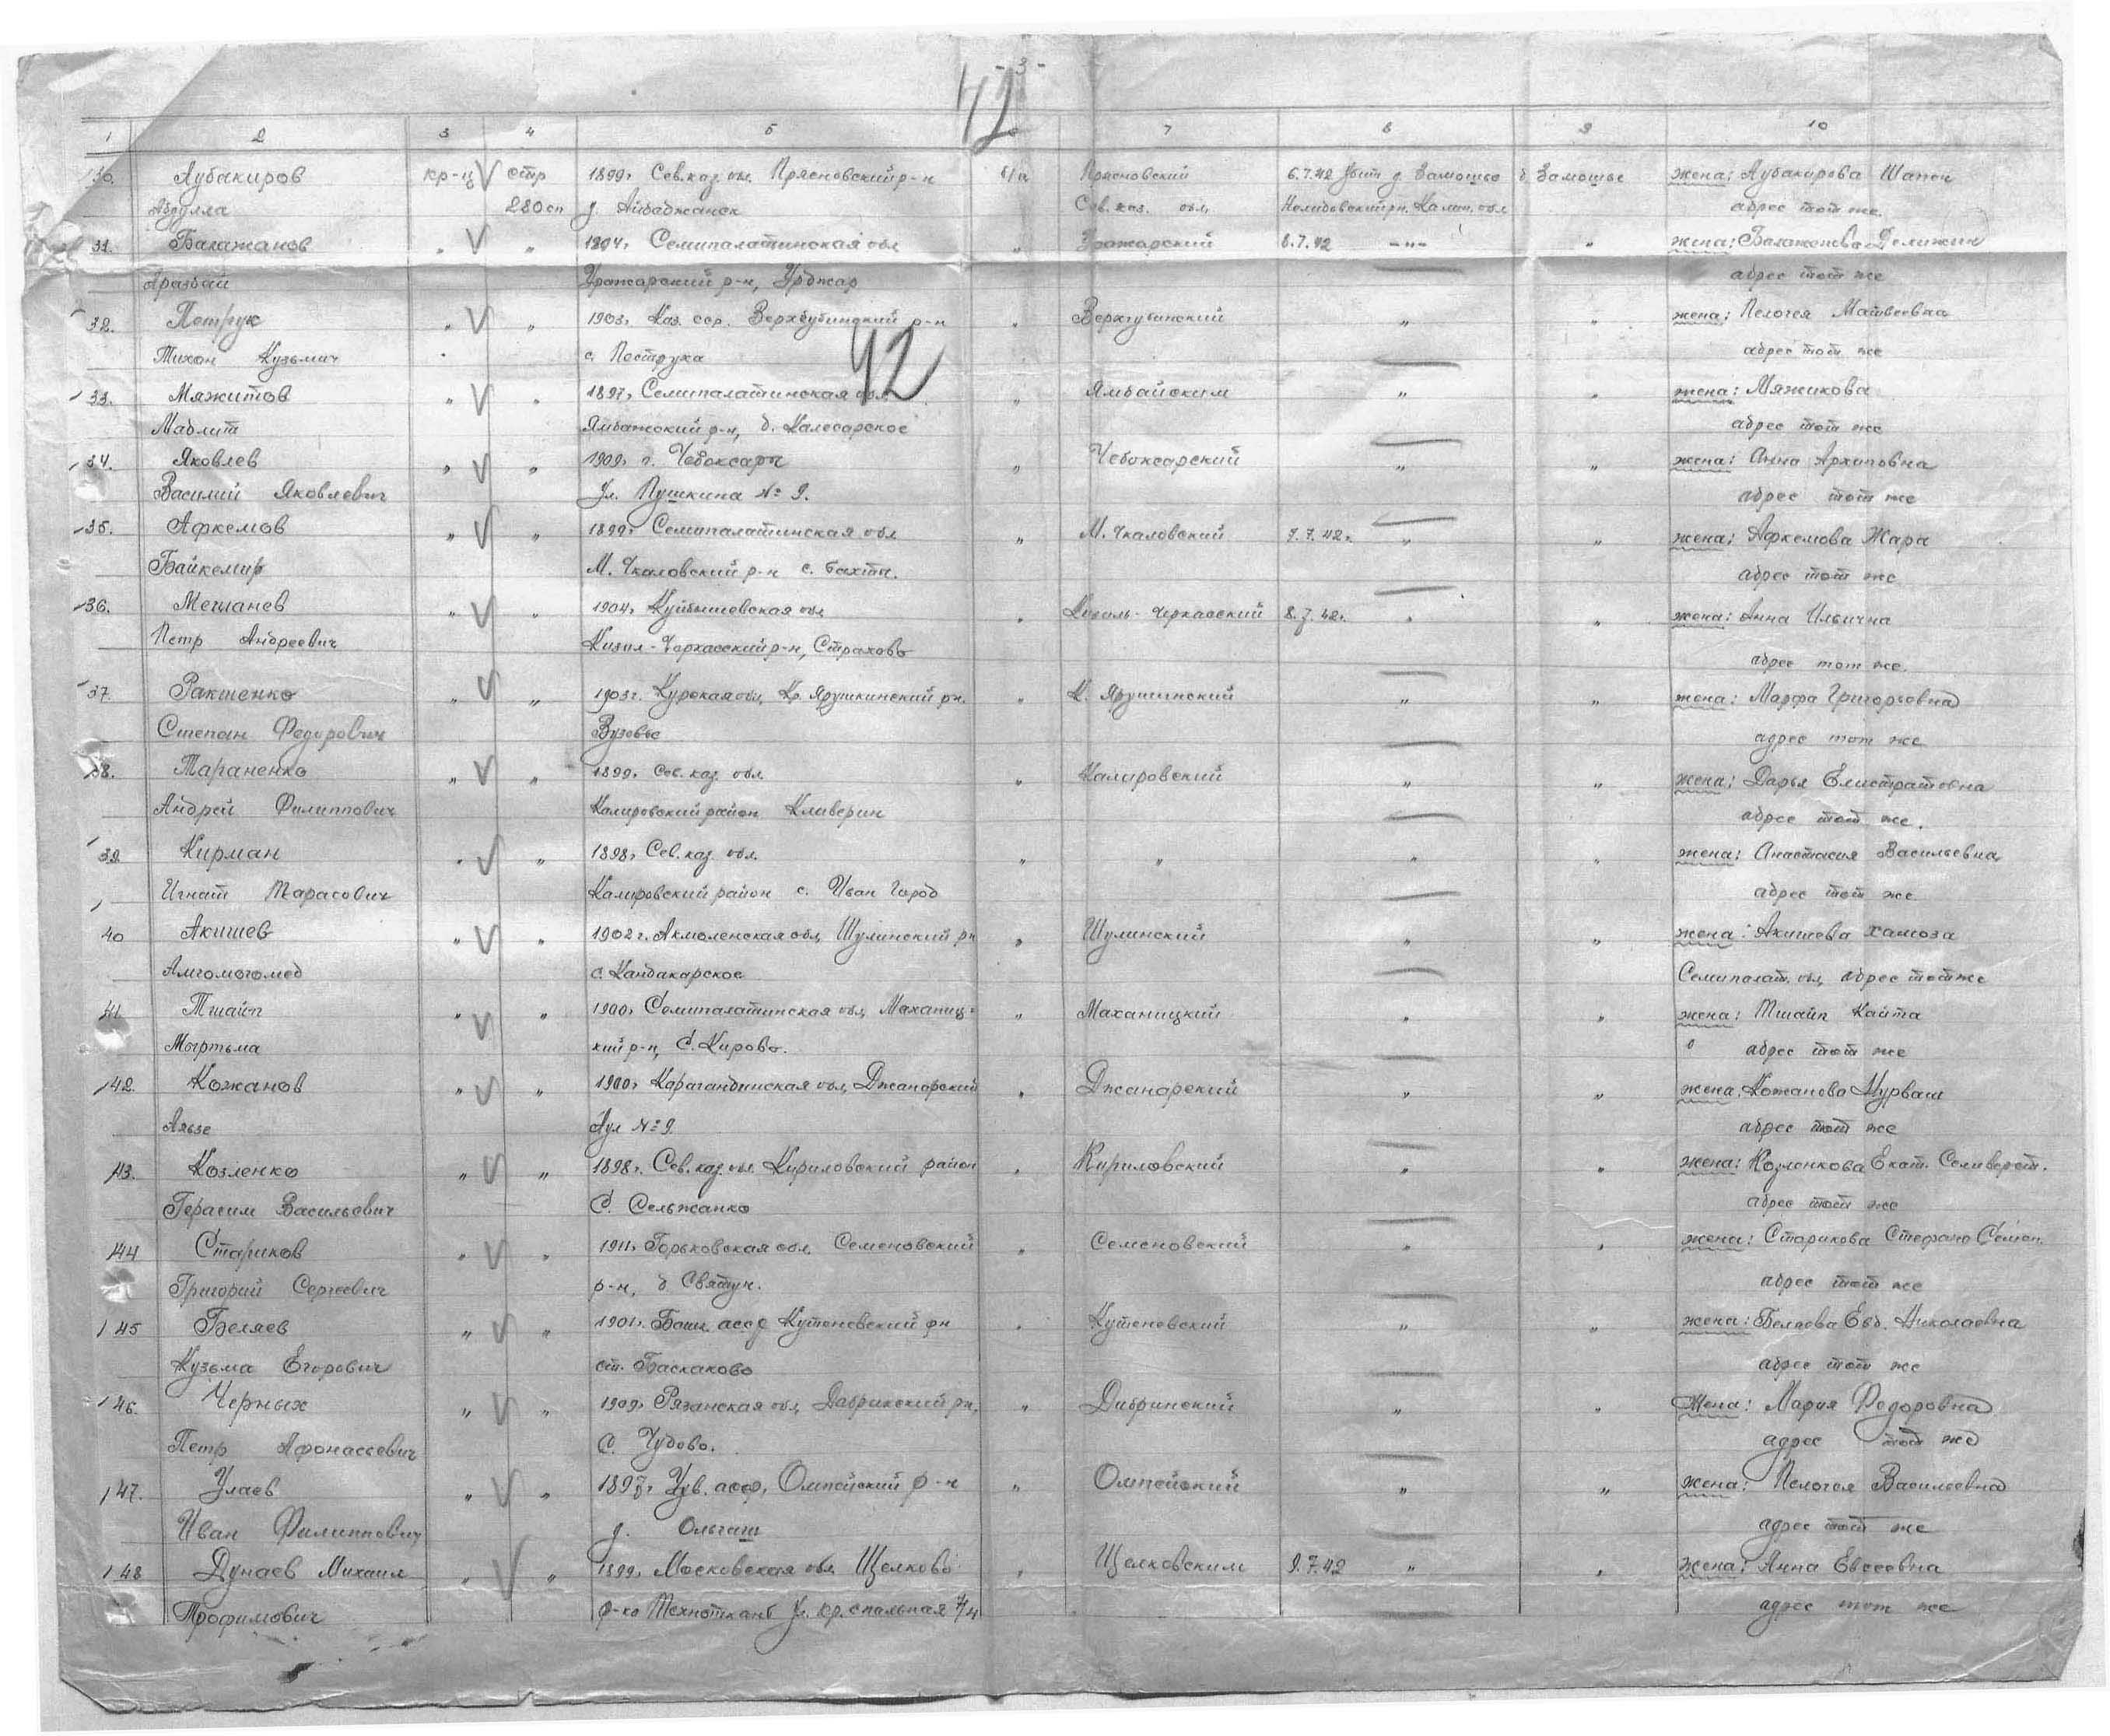 - 3 -
42
1 2 3 4 5 6 7 8 9 10
30. Аубакиров кр-ц V стр 1899г Сев. каз. обл. Пресновский р-н б/п Пресновский 6.7.42 убит д. Замошье д. Замошье жена: Аубакирова Шапен
Абдулла 280 сп д. Айбаджанск Сев. каз. обл. Нелидовский рн. Калин. обл адрес тот же.
31. Балажанов " V " 1894г Семипалатинская обл " 8.7.42 -"- " жена: Балаженова
Аразбай р-н, Урджар адрес тот же
32. Петрук " V " 1903г Каз. сср. Верхубинский р-н " Верхубинский " " жена: Пелогея Матвеевна
Тихон Кузьмич с. Поструха адрес тот же
42
33. Мяжитов " V " 1897г Семипалатинская обл. " Ямбайским " " жена: Мяжикова
Маблит р-н, д. Калесарское адрес тот же
34. Яковлев " V " 1909г г. Чебоксары " Чебоксарский " " жена: Анна Архиповна
Василий Яковлевич Ул. Пушкина № 9. адрес тот же
35. Афкемов " V " 1899г Семипалатинская обл " М. Чкаловский 7.7.42г. " " жена: Афкемова Жара
Байкемир М. Чкаловский р-н с. Бахты. адрес тот же
36. Мечтанев " V " 1904г Куйбышевская обл " Кизыль-Черкасский 8.7.42г. " " жена: Анна Ильична
Петр Андреевич Кизил-Черкасский р-н, Страхово адрес тот же.
37. Ракшенко " V " 1903г. Курская обл, Кр. Ярушкинский рн. " К. Ярушинский " " жена: Марфа Григорьевна
Степан Федорович Вузовье адрес тот же
38. Тараненко " V " 1899г Сев. каз. обл. " Калировский " " жена: Дарья Елистратовна
Андрей Филиппович Калировский район Кливерин адрес тот же.
39. Кирман " V " 1898г Сев. каз. обл. " " " " жена: Анастасия Васильевна
Игнат Тарасович Калировский район с. Иван Город адрес тот же
40 Акишев " V " 1902г. Акмоленская обл, Шулинский рн " Шулинский " " жена: Акишева Хамоза
Амгомогомед с. Кандакарское Семипалат. обл, адрес тот же
41. Тшайп " V " 1900г Семипалатинская обл, Маханиц- " Маханицкий " " жена: Тшайп Кайта
Могртыма кий р-н, С. Кирово. адрес тот же
42. Кожанов " V " 1900г Карагандинская обл, Джанарский " Джанарский " " жена: Кожанова Нурваш
Аязе Аул № 9. адрес тот же
43. Козленко " V " 1898г. Сев. каз. обл. Кириловский район " Кириловский " " жена: Козленкова Екат. Селиверст.
Герасим Васильевич С. Сельжанко адрес тот же
44 Стариков " V " 1911г Горьковская обл. Семеновский " Семеновский " " жена: Старикова Семен.
Григорий Сергеевич р-н, д Святун. адрес тот же
45 Беляев " V " 1901г. Баш. асср Кутеновский рн " Кутеновский " " жена: Беляева Евд. Николаевна
Кузьма Егорович ст. Баскаково адрес тот же
46. Черных " V " 1909г Рязанская обл, Добринский рн, " Добринский " " Жена: Мария Федоровна
Петр Афонасьевич С. Чудово. адрес тот же
47. Улаев " V " 1897г Чув. асср, Омпейский р-н " Омпейский " " жена: Пелогея Васильевна
Иван Филиппович д. Ольгаш адрес тот же
48 Дунаев Михаил " V " 1899г Московская обл Щелково " Щелковским 9.7.42 " " жена: Анна Евсеевна
Трофимович ф-ка Техноткань Ул. кр. спальная 7/4 адрес тот же